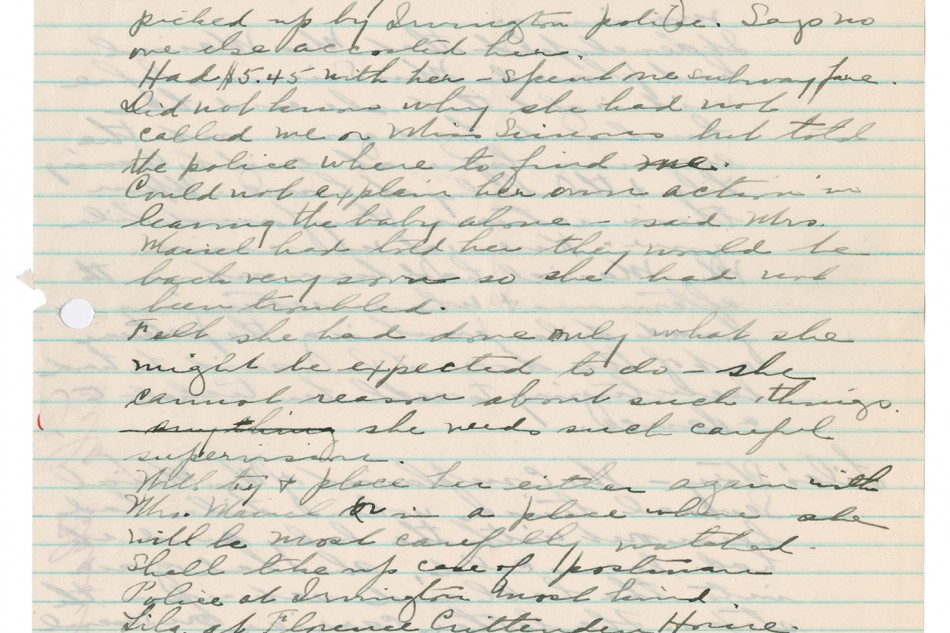 picked up by Irvington police. Says no
one else accosted her.
Had $5.45 with her – spent one subway fare.
Did not know why she had not
called me or Miss Simons but told
the police where to find me.
Could not explain her own action in
leaving the baby alone – said Mrs.
had told her they would be
back very soon so she had not
been troubled.
Felt she had done only what she
might be expected to do – she
cannot reason about such things.
anything she needs such careful
supervision.
Will try & place her either again with
Mrs. or in a place where she
will be most carefully watched.
Shall take up case of postman
Police at Irvington most kind
Lila at Florence Crittenden Home.